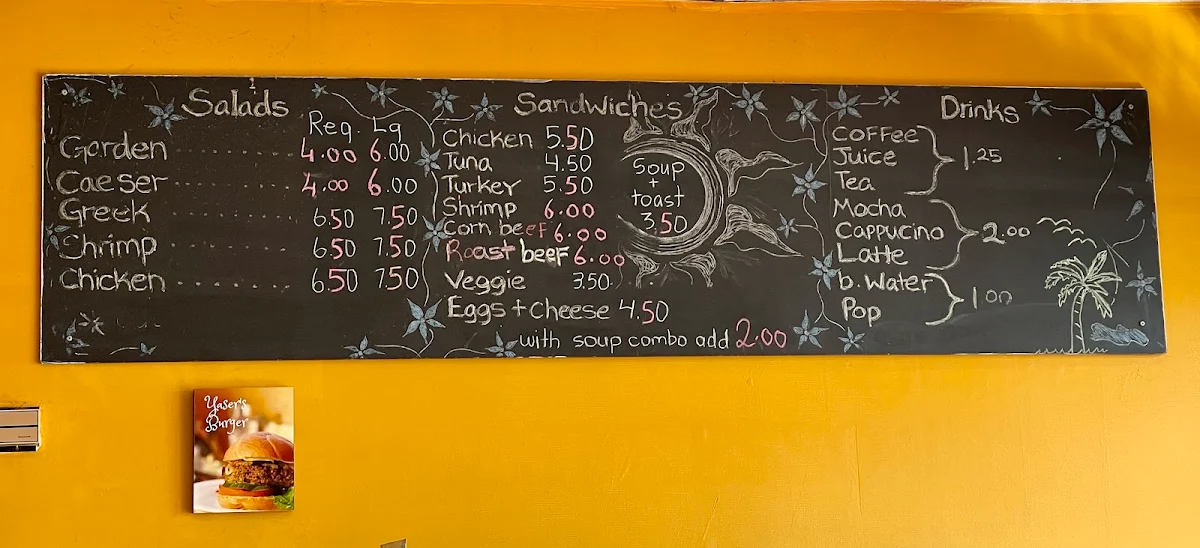 Salads
Reg. Lg
Garden 4.00 6.00
Caeser 4.00 6.00
Greek 6.50 7.50
Shrimp 6.50 7.50
Chicken 6.50 7.50
Sandwiches
Chicken 5.50
Tuna 4.50
Turkey 5.50
Shrimp 6.00
Corn beef 6.00
Roast beef 6.00
Veggie 3.50
Eggs + Cheese 4.50
with soup combo add 2.00
Soup
+
toast
3.50
Drinks
Coffee
Juice 1.25
Tea
Mocha
Cappucino 2.00
Latte
b. Water
Pop 1.00
Yaser's
Burger